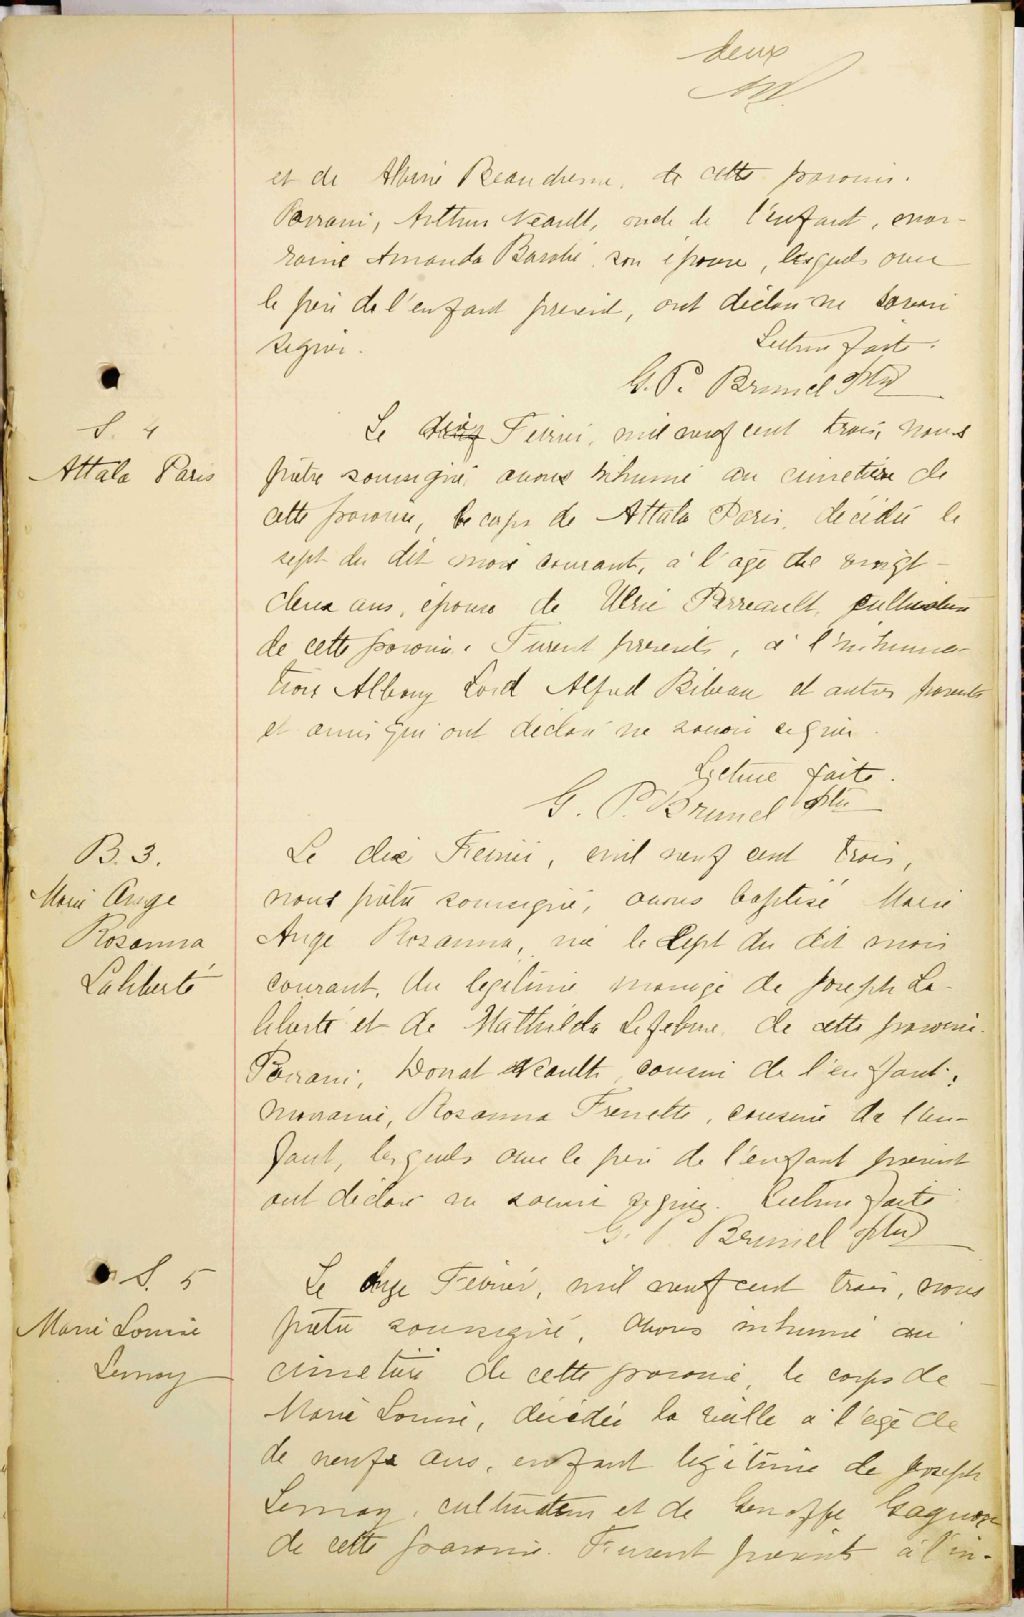 deux
et de Albine Beauchesne, de cette paroisse.
Parrain, Arthur Neault, oncle de l'enfant, mar-
raine Amanda Baribé son épouse, lesquels avec
le père de l'enfant présent, ont déclaré ne savoir
signer. Lecture faite.
G. P. Brunel Ptre
S. 4
Attala Paris
Le dix Février, mil neuf cent trois, nous
prêtre soussigné avons inhumé au cimetière de
cette paroisse, le corps de Attala Paris, décédée le
sept du dit mois courant, à l'âge de vingt-
deux ans, épouse de Ulric Perreault, cultivateur
de cette paroisse. Furent présents, à l'inhuma-
tion Albany Lord Alfred Bibeau et autres parents
et amis qui ont déclaré ne savoir signer.
Lecture faite.
G. P. Brunel Ptre
B. 3.
Marie Ange
Rosanna
Laliberté
Le dix Février, mil neuf cent trois,
nous prêtre soussigné, avons baptisé Marie
Ange Rosanna, née le sept du dit mois
courant, du légitime mariage de Joseph La-
liberté et de Mathilda Lefebvre, de cette paroisse.
Parrain, Donat Neault, cousin de l'enfant;
marraine, Rosanna Frenette, cousine de l'en-
fant, lesquels avec le père de l'enfant présent
ont déclaré ne savoir signer. Lecture faite
G. P. Brunel Ptre
S. 5
Marie Louise
Lemay
Le onze Février, mil neuf cent trois, nous
prêtre soussigné, avons inhumé au
cimetière de cette paroisse, le corps de
Marie Louise, décédée la veille à l'âge de
de neuf ans, enfant légitime de Joseph
Lemay, cultivateur et de Genoffe Gagnon
de cette paroisse. Furent présents à l'in-